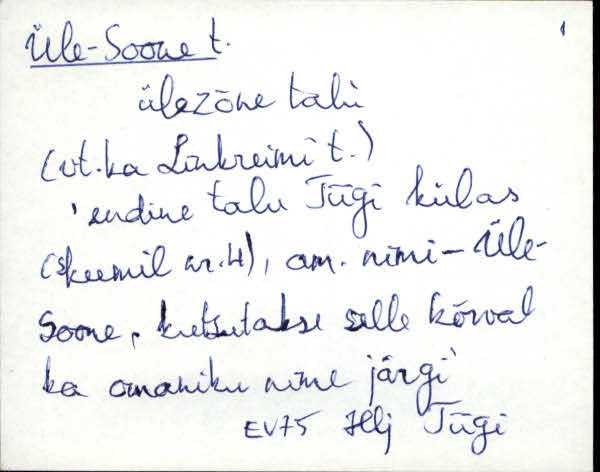 1
Üle-Soone t.
ülezõne talu
(vt. ka Linkreimi t.)
'endine talu Tügi külas
(skeemil nr. 4), am. nimi – Üle-
Soone, kutsutakse selle kõrval
ka omaniku nime järgi'
EV75 Hlj Tügi